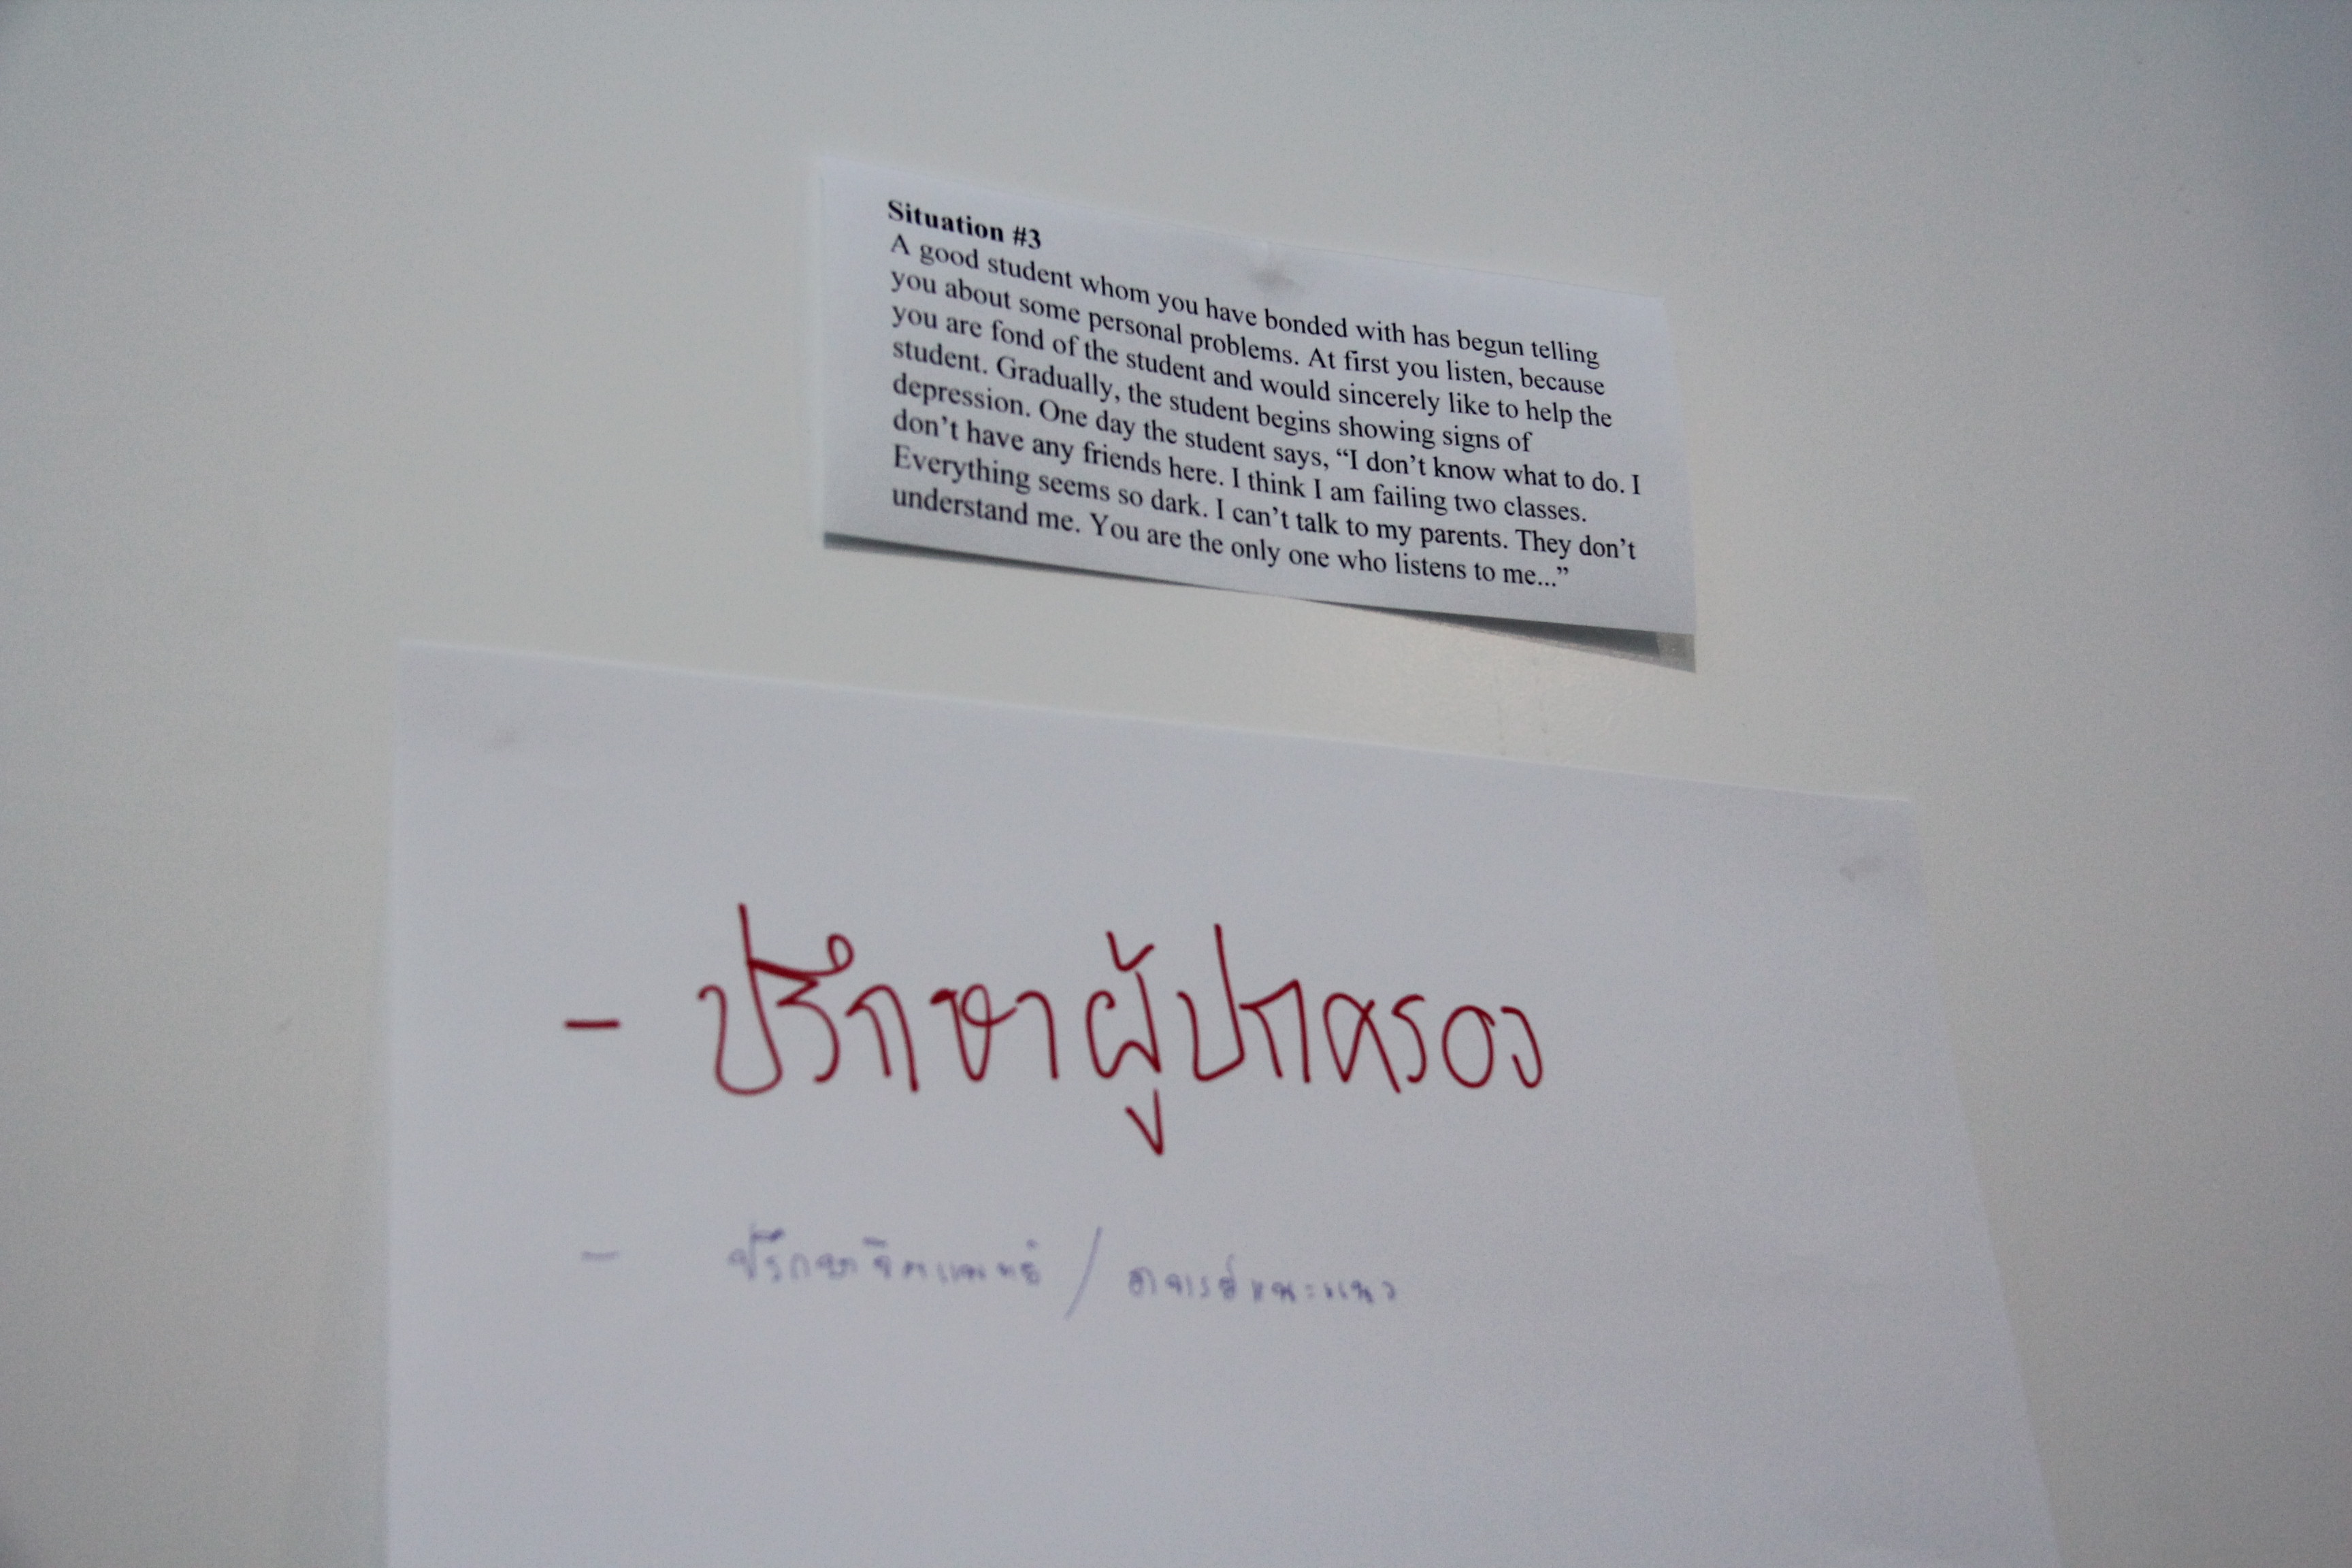 Situation #3
A good student whom you have bonded with has begun telling
you about some personal problems. At first you listen, because
you are fond of the student and would sincerely like to help the
student. Gradually, the student begins showing signs of
depression. One day the student says, “I don’t know what to do. I
don’t have any friends here. I think I am failing two classes.
Everything seems so dark. I can’t talk to my parents. They don’t
understand me. You are the only one who listens to me...”
- ปรึกษาผู้ปกครอง
- ปรึกษาจิตแพทย์ / อาจารย์แนะแนว